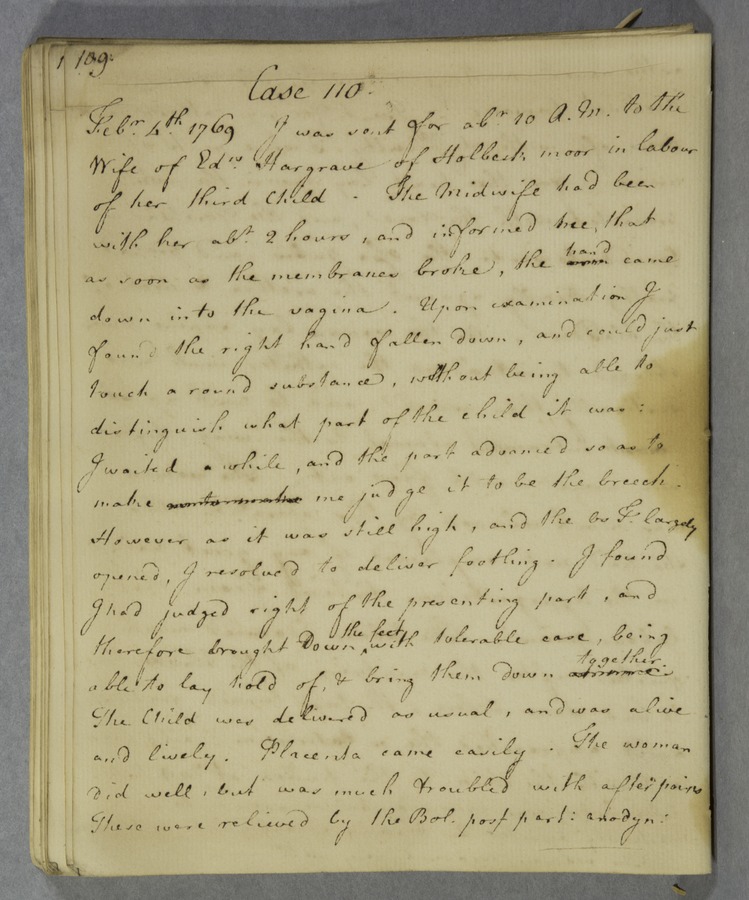 109.
Case 110.
Febr. 4th 1769 I was sent for abt. 10 A.M. to the
Wife of Edw. Hargrave of Holbeck moor in labour
of her third Child. The Midwife had been
with her abt. 2 hours, and informed me, that
as soon as the membranes broke, the hand came
down into the vagina. Upon examination I
found the right hand fallen down, and could just
touch a round substance, without being able to
distinguish what part of the child it was:
I waited a while, and the part advanced so as to
make me judge it to be the breech.
However as it was still high, and the os T. largely
opened, I resolved to deliver footling. I found
I had judged right of the presenting part, and
therefore brought Down the feet with tolerable ease, being
able to lay hold of, & bring them down together.
The Child was delivered as usual, and was alive
and lively. Placenta came easily. The woman
did well, but was much troubled with after pains
These were relieved by the Bol. post part: anodyn: